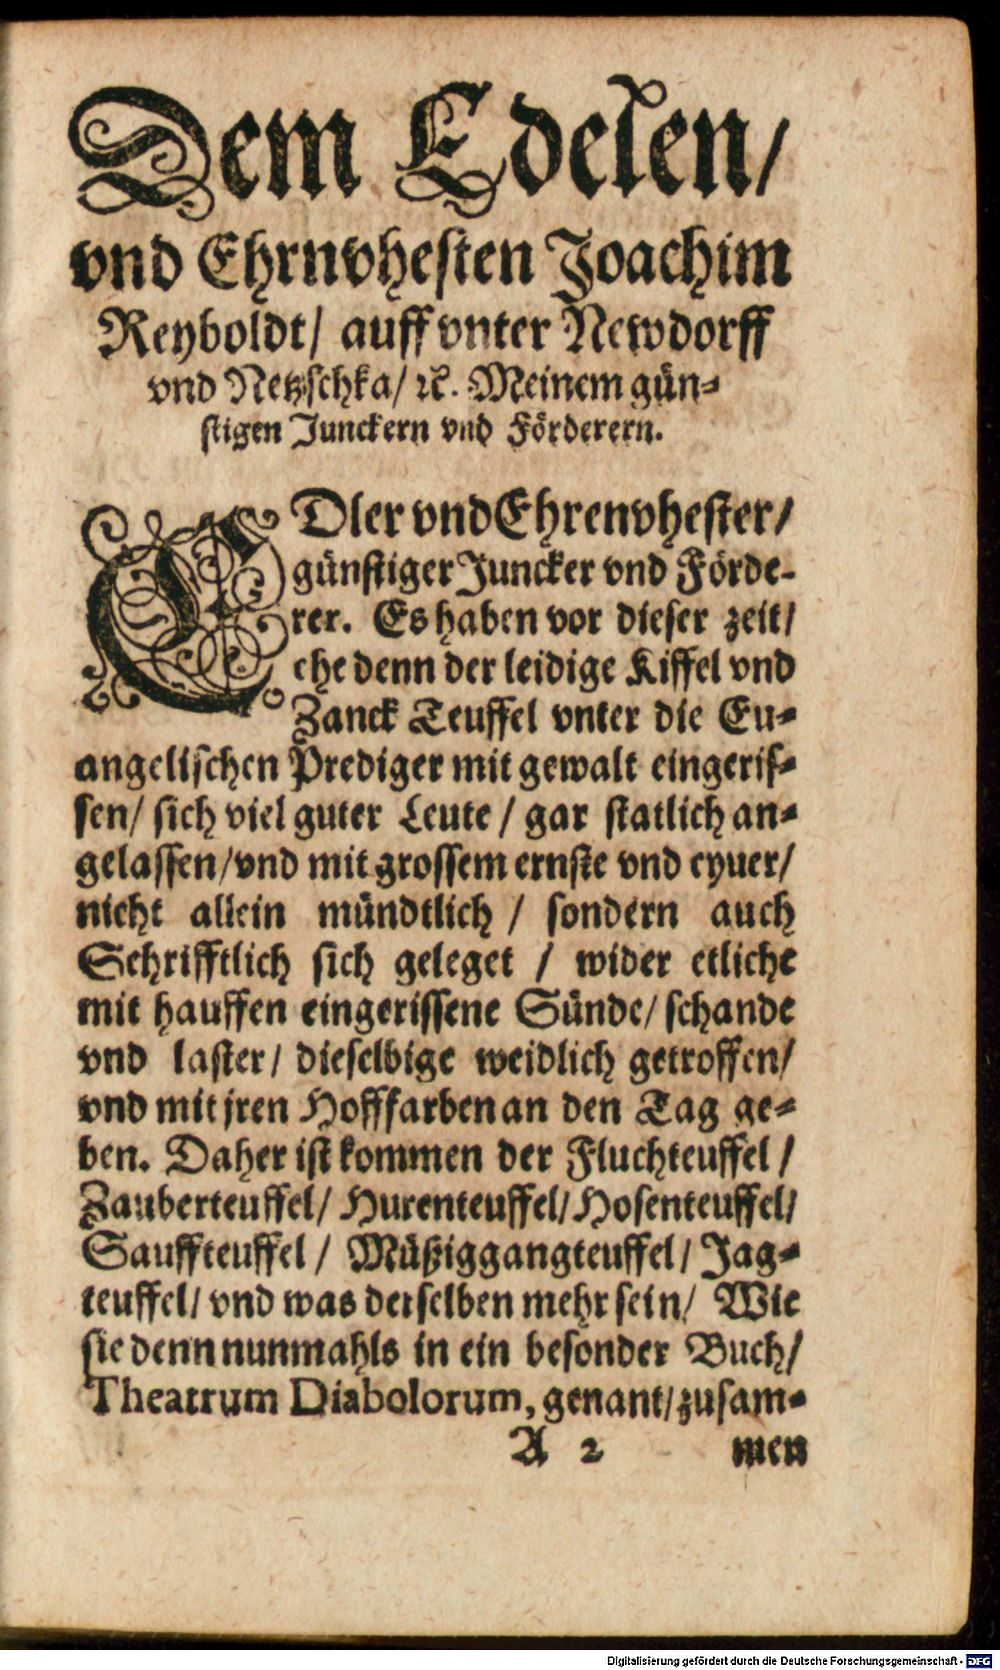 Dem Edelen/
vnd Ehrnvhesten Joachim
Reyboldt/ auff vnter Newdorff
vnd Netzschka/ ꝛc. Meinem gün-
stigen Junckern vnd Förderern.
EDler vnd Ehrenvhester/
günstiger Juncker vnd Förde-
rer. Es haben vor dieser zeit/
ehe denn der leidige Kiffel vnd
Zanck Teuffel vnter die Eu-
angelischen Prediger mit gewalt eingeris-
sen/ sich viel guter Leute/ gar statlich an-
gelassen/ vnd mit grossem ernste vnd eyuer/
nicht allein mündtlich/ sondern auch
Schrifftlich sich geleget/ wider etliche
mit hauffen eingerissene Sünde/ schande
vnd laster/ dieselbige weidlich getroffen/
vnd mit jren Hofffarben an den Tag ge-
ben. Daher ist kommen der Fluchteuffel/
Zauberteuffel/ Hurenteuffel/ Hosenteuffel/
Sauffteuffel/ Müßiggangteuffel/ Jag-
teuffel/ vnd was derselben mehr sein/ Wie
sie denn nunmahls in ein besonder Buch/
Theatrum Diabolorum, genant/ zusam-
A 2 men
Digitalisierung gefördert durch die Deutsche Forschungsgemeinschaft - DFG